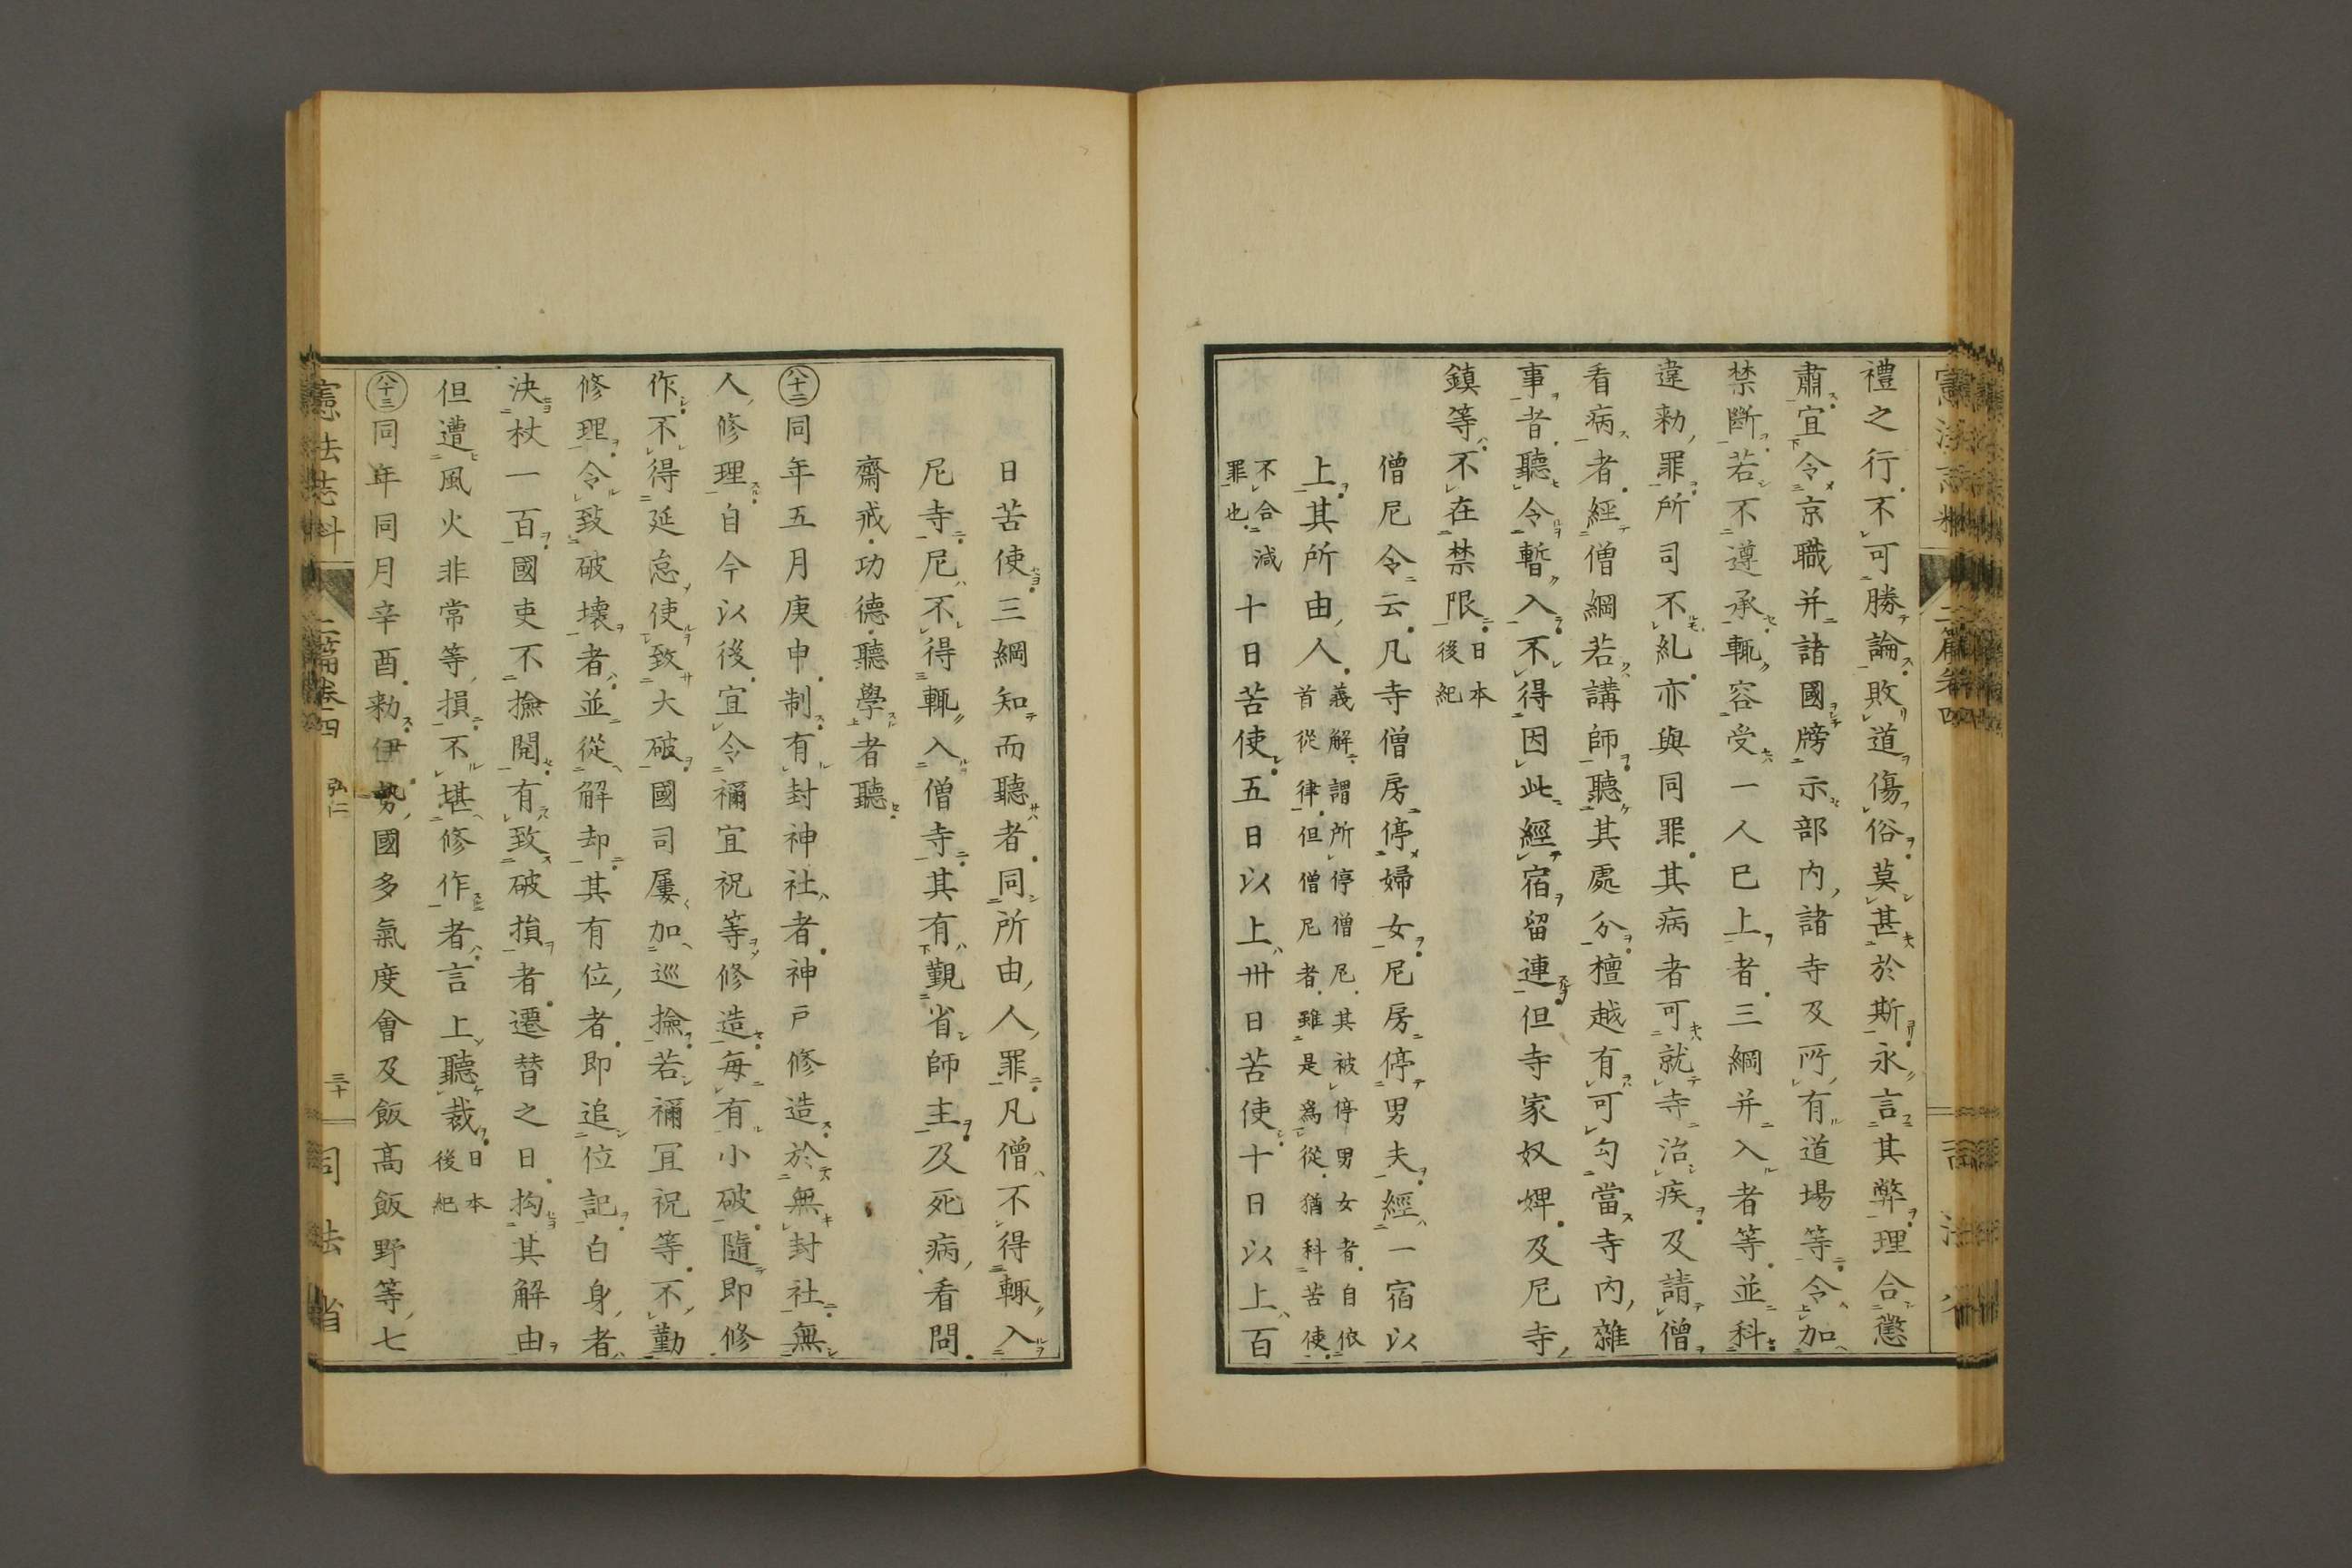 禮之行不可勝論敗道傷俗莫甚於斯永言其弊理合懲
肅宜令京職并諸國牓示部内諸寺及所有道場等令加
禁斷若不遵承輙容受一人已上者三綱并入者等並科
違勅罪所司不糺亦與同罪其病者可就寺治疾及請僧
看病者經僧綱若講師聽其處分檀越有可勾當寺内雜
事者聽令暫入不得因此經宿留連但寺家奴婢及尼寺
鎮等不在禁限日本後紀
僧尼令云凡寺僧房停婦女尼房停男夫經一宿以
上其所由人義解謂所停僧尼其被停男女者自依首從律但僧尼者雖是爲從猶科苦使
不合減罪也十日苦使五日以上卅日苦使十日以上百
日苦使三綱知而聽者同所由人罪凡僧不得輙入
尼寺尼不得輙入僧寺其有覲省師主及死病看問
齋戒功德聽學者聽
八十二同年五月庚申制有封神社者神戸修造於無封社無
人修理自今以後宜令禰宜祝等修造毎有小破隨即修
作不得延怠使致大破國司屢加巡撿若禰冝祝等不勤
修理令致破壞者並從解却其有位者即追位記白身者
決杖一百國吏不撿閲有致破損者遷替之日拘其解由
但遭風火非常等損不堪修作者言上聽裁日本後紀
八十三同年同月辛酉勅伊勢國多氣度會及飯高飯野等七
憲法志料 二篇卷四 弘仁 三十 司法省